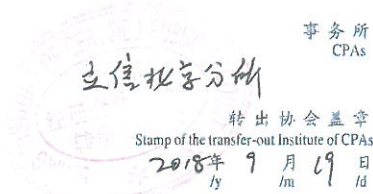 事务所
CPAs
立信北京分所
转出协会盖章
Stamp of the transfer-out Institute of CPAs
2018年 9 月 19 日
/y /m /d